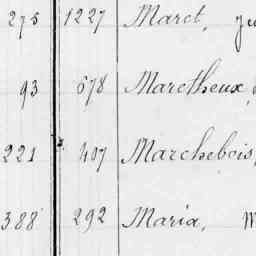 275 1227 Marct, ju
93 678 Marctheux,
221 407 Marchebois,
388 292 Maria, M